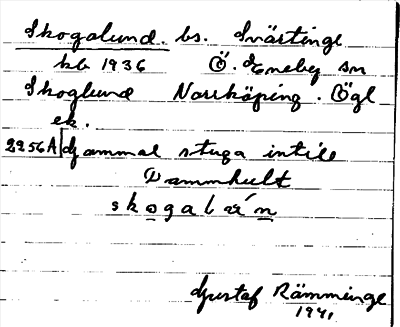 Skogalund. bs. Svärtinge
kb 1936 Ö. Eneby sn
Skoglund Norrköping. Ögl
ek.
2256A Gammal stuga intill
Dammhult
skogalæ´n
Gustaf Rämminge
1941